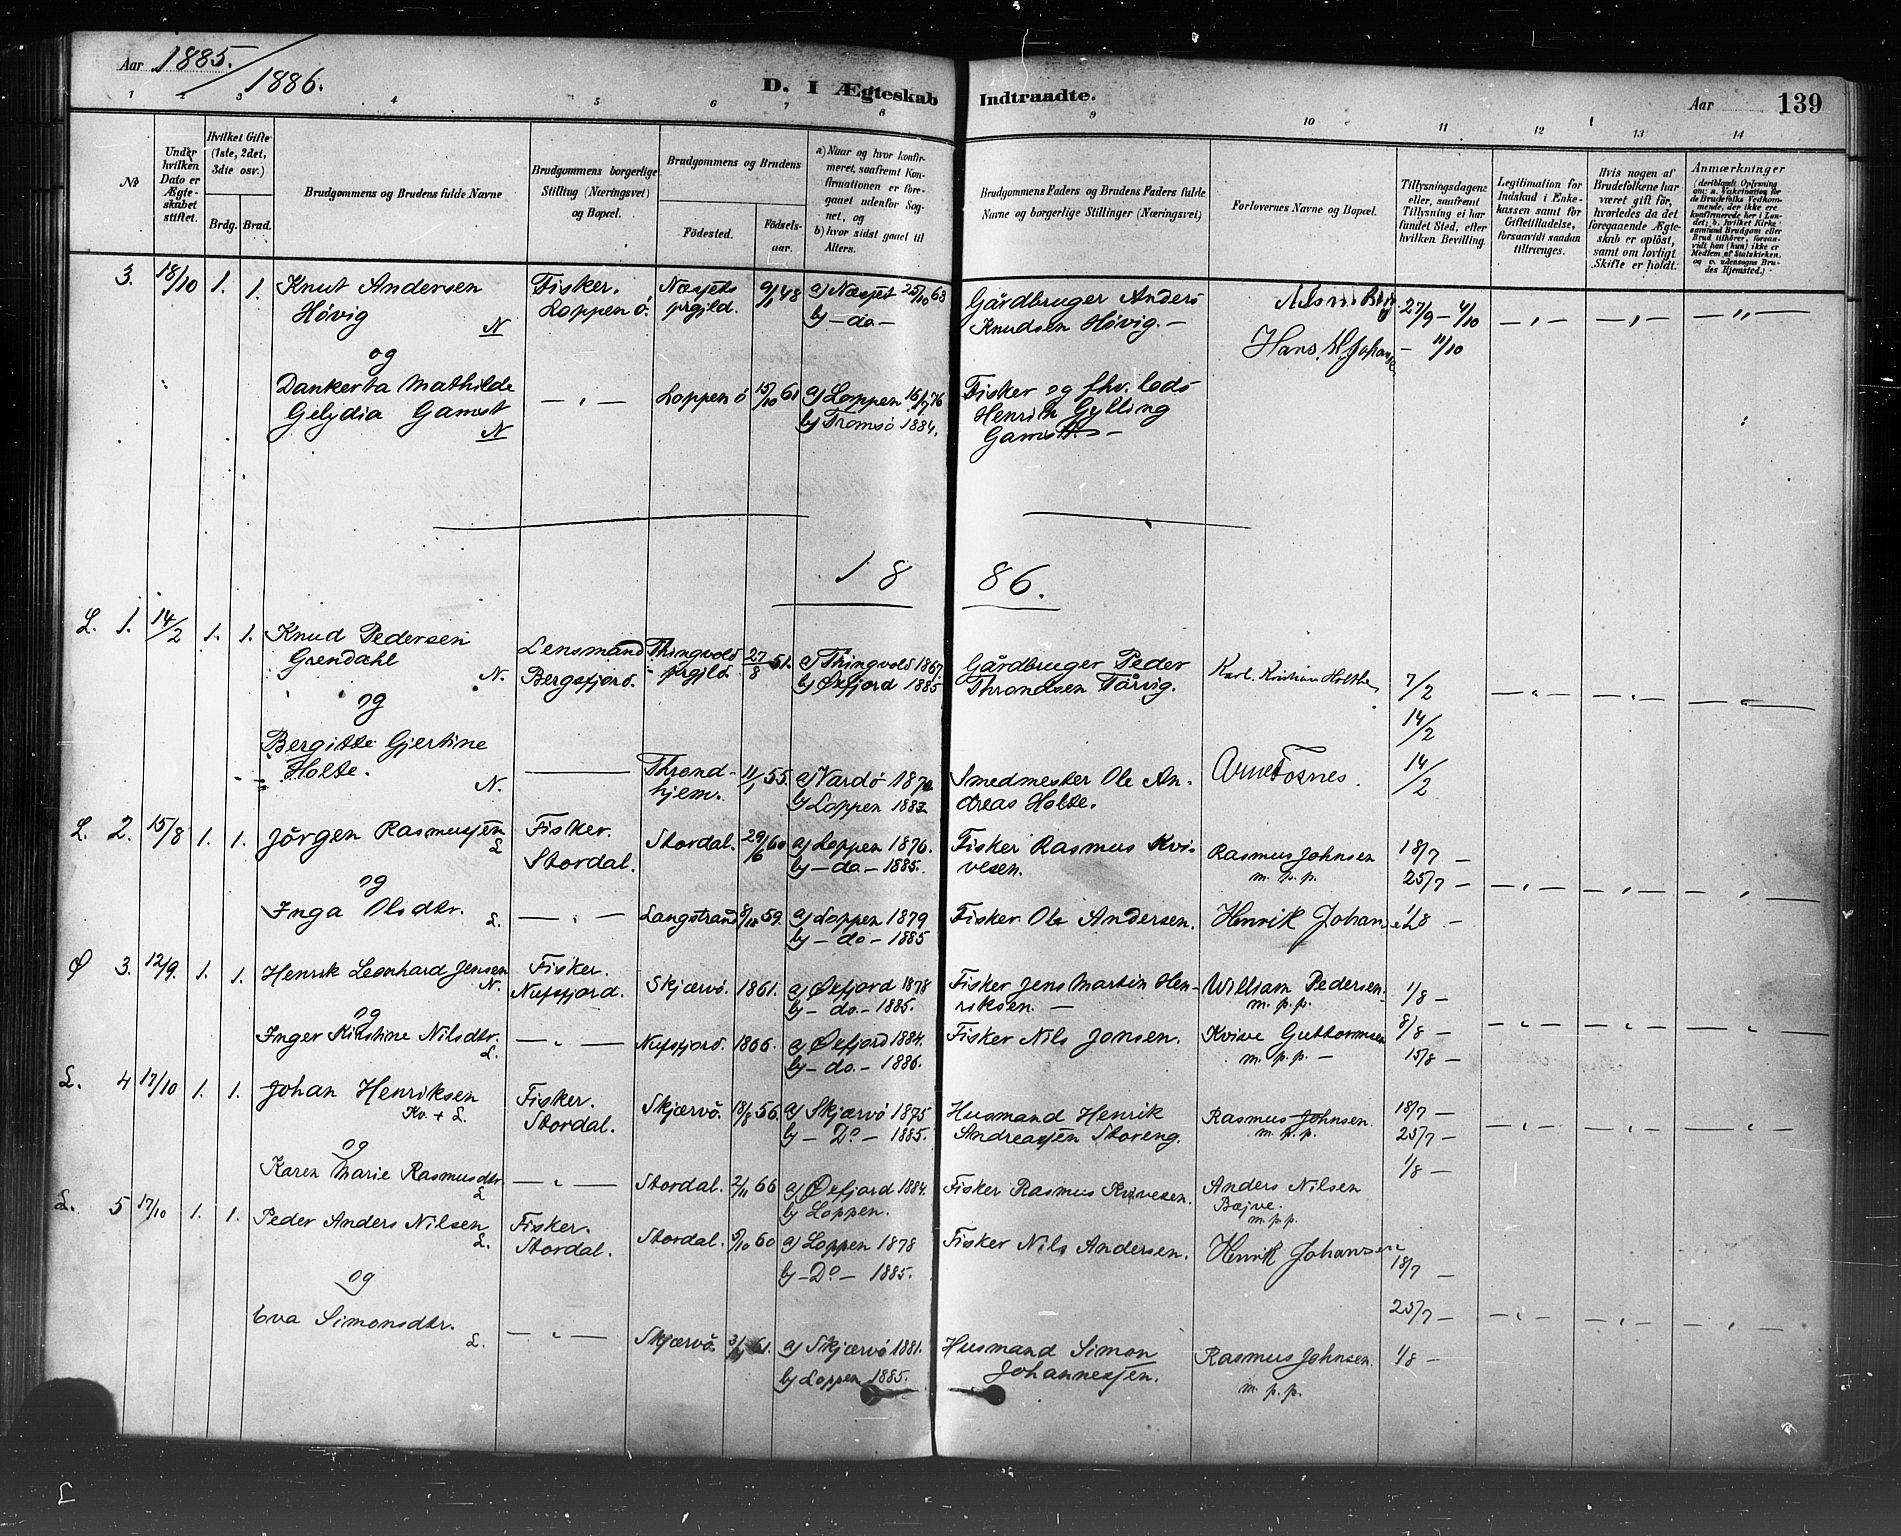 Aar 1885. / 1886.
D. I Ægteskab Indtraadte.
Aar 139
1 2 3 4 5 6 7 8 9 10 11 12 13 14
No
Under hvilken Dato er Ægteskabet stiftet.
Hvilket Gifte (1ste, 2det, 3die osv.)
Brdg. Brud.
Brudgommens og Brudens fulde Navne
Brudgommens borgerlige Stilling (Næringsvei) og Bopæl.
Brudgommens og Brudens
Fødested. Fødsels-aar.
a) Naar og hvor konfirmeret, saafremt Konfirmationen er foregaaet udenfor Sognet, og
b) hvor sidst gaaet til Alters.
Brudgommens Faders og Brudens Faders fulde Navne og borgerlige Stillinger (Næringsvei)
Forlovernes Navne og Bopæl.
Tillysningsdagene eller, saafremt Tillysning ei har fundet Sted, efter hvilken Bevilling.
Legitimation for Indskud i Enkekassen samt for Giftetilladelse, forsaavidt saadan tiltrænges.
Hvis nogen af Brudefolkene har været gift før, hvorledes da det foregaaende Ægteskab er opløst, samt om lovligt Skifte er holdt.
Anmærkninger
(deriblandt Oplysning om: a. Vakcination for de Brudefolks Vedkommende, der ikke ere konfirmerede her i Landet; b. hvilket Kirkesamfund Brudgom eller Brud tilhører, forsaavidt han (hun) ikke er Medlem af Statskirken, og c. udensogns Brudes Hjemsted.)
3. 18/10 1. 1. Knut Andersen Fisker. Næsets 9/11 48 a) Næsset 25/10 63 Gårdbruger Anders 27/9 - 4/10 - „ - - „ - - „ -
Høvig N Loppen ö. prgjld. b) - do - Knudsen Høvig. -
og Hans. Johans - 11/10
Dankerta Mathilde - „ - Loppen ö 15/10 61 a) Loppen 16/7 76 Fisker og fhv. lods
Gelydia Gamst N b) Tromsö 1884. Henrik Gylling
Gamst. -
18 86.
L. 1. 14/2 1. 1. Knud Pedersen Lensmand Thingvold 27/8 51. a) Thingvold 1867 Gårdbruger Peder Karl. Kristian Holthe 7/2 - „ - - „ - - „ -
Grendahl N. Bergsfjord. prgjld. b) Øxfjord 1885 Throndsen Tårvig.
og 14/2
Bergitte Gjertine Thrond- 11/1 55 a) Vardö Smedmester Ole An- Arne Fosnes. 14/2
Holte. N. hjem. b) Loppen dreas Holte.
L. 2. 15/8 1. 1. Jörgen Rasmussen L Fisker. Stordal. 29/6 60 a) Loppen 1876. Fisker Rasmus Kvi- Rasmus Johnsen 18/7 -
Stordal. b) - do - 1885. vesen. m. p. p. 25/7 - - „ - - „ - - „ -
og
Inga Olsdtr. L. - „ - Langstrand 8/10 59. a) Loppen 1879 Fisker Ole Andersen. Henrik Johansen 1/8 -
b) - do - 1885
Ø 3. 12/9. 1. 1. Henrik Leonhard Jensen N. Fisker. Skjærvö. 1861. a) Øxfjord 1878 Fisker Jens Martin Hen- William Pedersen 1/8 -
Nufsfjord. b) - do - 1885. riksen. - m. p. p.
og 8/8 - - „ - - „ - - „ -
Inger Kirstine Nilsdtr. L. - „ - Nufsfjord. 1866. a) Øxfjord 1884. Fisker Nils Jonsen. Kvive Guttormsen 15/8 -
b) - do - 1886. m. p. p. -
L. 4 17/10 1. 1. Johan Henriksen Fisker. Skjærvö. 18/8 56. a) Skjærvö 1875 Husmand Henrik Rasmus Johnsen. 18/7 -
Kv. + L. Stordal. b) - Do - 1885. Andreassen Storeng. m. p. p. 25/7 - - „ - - „ - - „ -
og 1/8 -
Karen Marie Rasmusdtr L - „ - Stordal. 2/11 66 a) Øxfjord 1884. Fisker Rasmus Kvivesen. Anders Nilsen
b) Loppen. Bajve. m. p. p.
L. 5 17/10 1. 1. Peder Anders Nilsen L. Fisker. Stordal. 9/10 60 a) Loppen 1878 Fisker Nils Andersen. Henrik Johansen 18/7 -
Stordal. b) - Do - 1885.
og 25/7 - - „ - - „ - - „ -
Eva Simonsdtr. L. - „ - Skjærvö 61. a) Skjærvö 1881. Husmand Simon Rasmus Johnsen. 1/8 -
b) Loppen 1885. Johannessen. m. p. p.